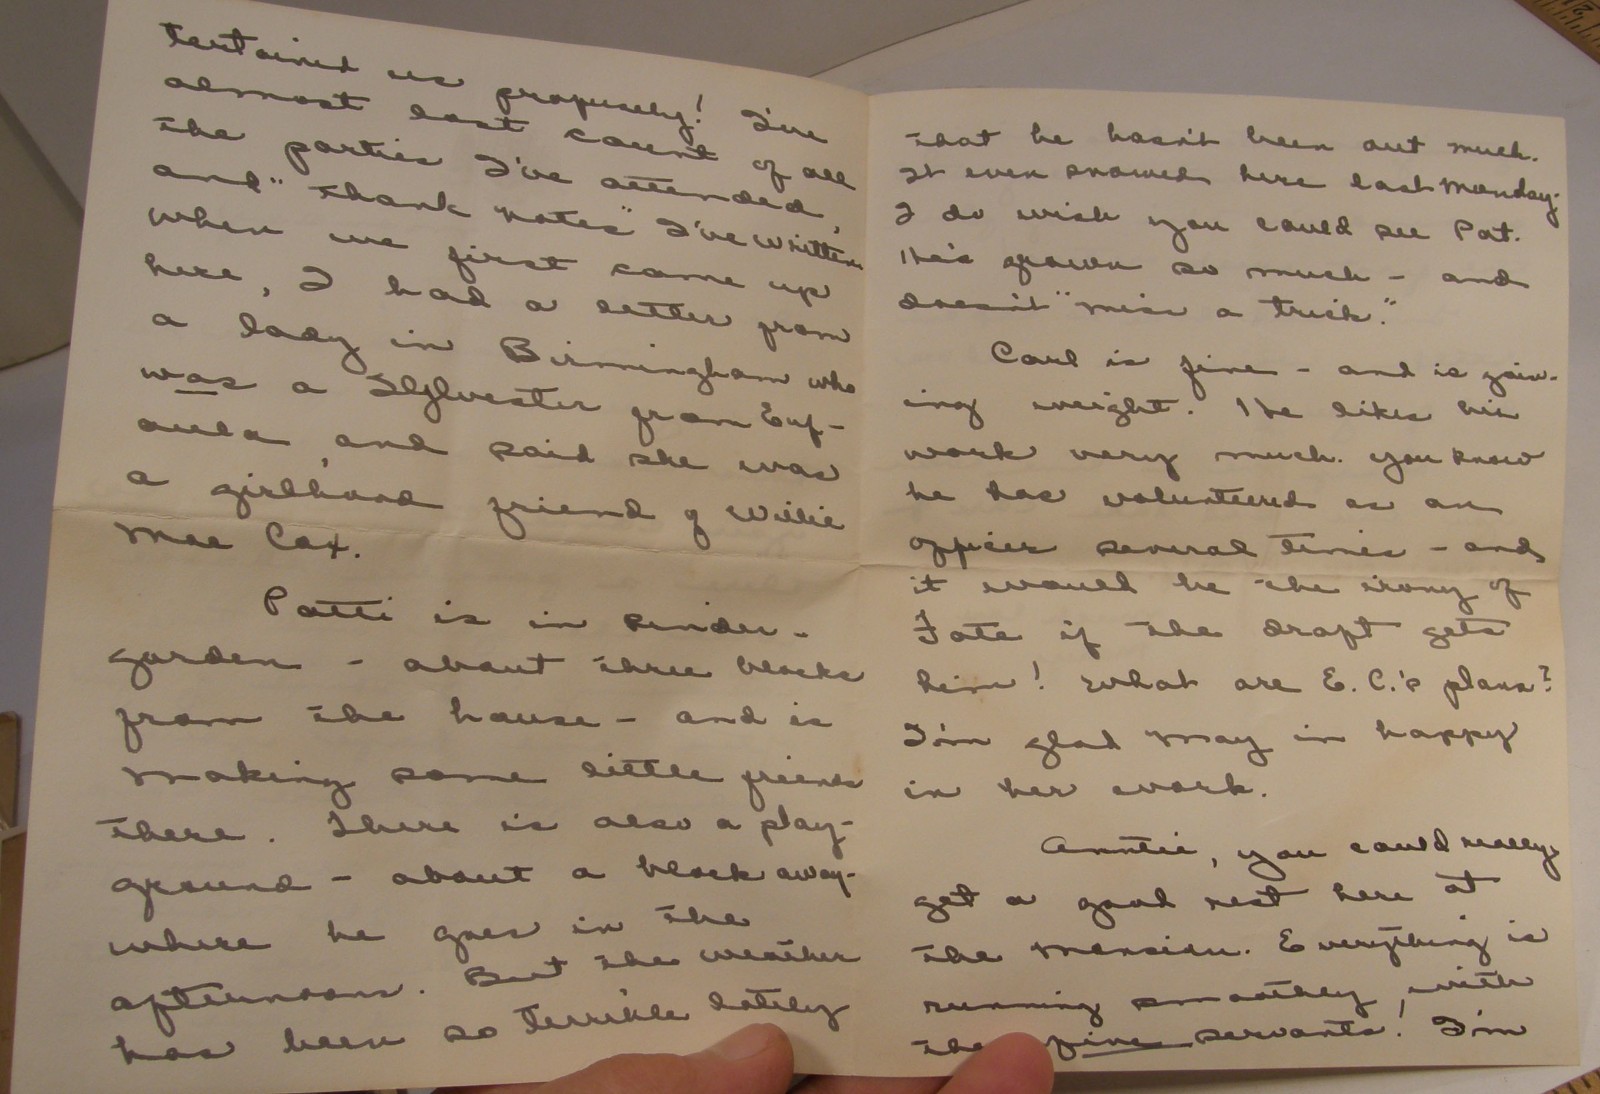 tertained us profusely! I've
almost lost count of all
the parties I've attended,
and "thank notes" I've written
when we first came up
here, I had a letter from
a lady in Birmingham who
was a Sylvester from Euf-
aula, and said she was
a girlhood friend of Willie
Mae Cox.
Patti is in kinder-
garden - about three blocks
from the house - and is
making some little friends
there. There is also a play-
ground - about a block away-
where he goes in the
afternoons. But the weather
has been so terrible lately
that he hasn't been out much.
It even snowed here last Monday.
I do wish you could see Pat.
He's grown so much - and
doesn't "miss a trick."
Carl is fine - and is gain-
ing weight. He likes his
work very much. You know
he has volunteered as an
officer several times - and
it would be the irony of
Fate if the draft gets
him! What are E.C.'s plans?
I'm glad May is happy
in her work.
Anntie, you could really
get a good rest here at
the Mansion. Everything is
running smoothly, with
the fine servants! I'm